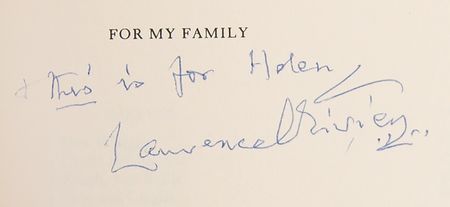 FOR MY FAMILY
+ this is for Helen
Laurence Olivier